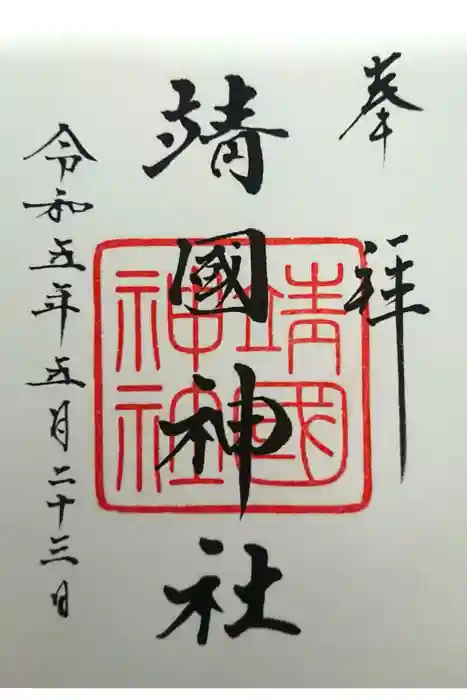 奉拝
靖國神社
靖國神社
令和五年五月二十三日